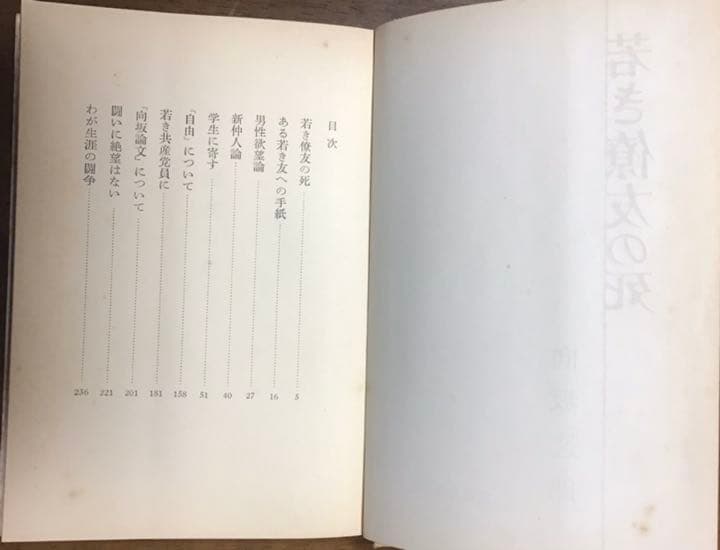 若き僚友の死
目次
若き僚友の死……5
ある若き友への手紙……16
男性欲望論……27
新仲人論……40
学生に寄す……51
「自由」について……158
若き共産党員に……181
「向坂論文」について……201
闘いに絶望はない……221
わが生涯の闘争……236